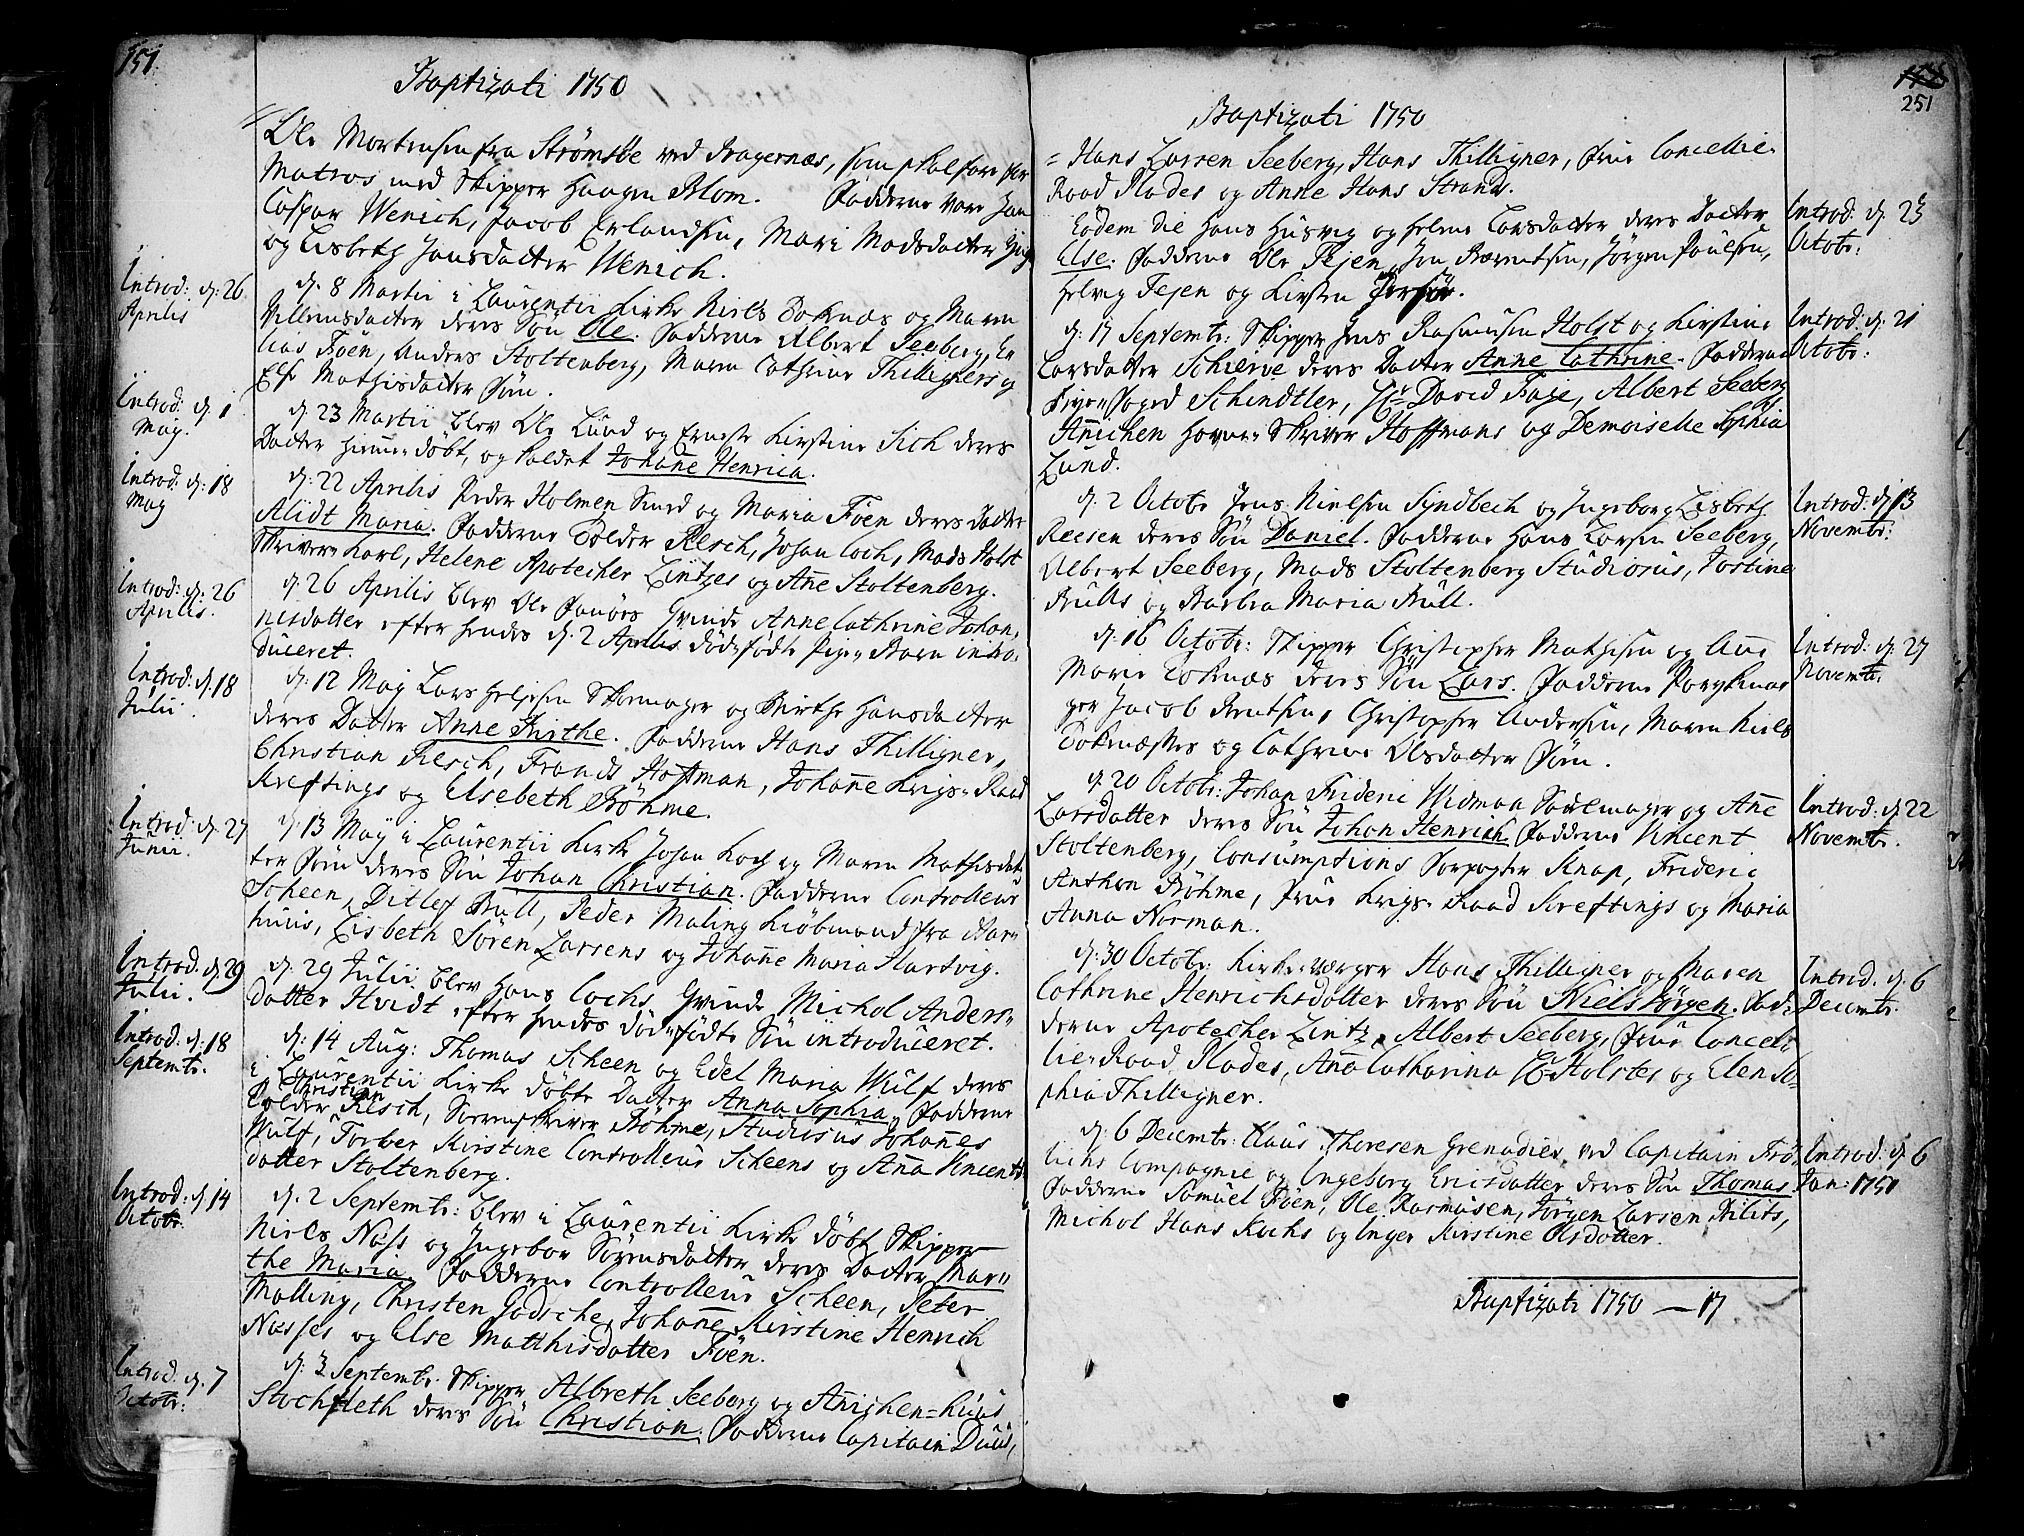 151.
Baptizati 1750
Ole Mortensen fra Strømsöe ved Bragernæs, som skal fare for
Matros med Skipper Haagen Blom. Fadderne vare Jan
Caspar Wenich, Jacob Erlandsen, Mari Madsdatter
og Lisbeth Jansdatter Wenich.
Introd: d: 26
Aprilis
d. 8 Martii i Laurentii Kirke Niels Toknæs og Maren
Villumsdatter deres Søn Ole. Fadderne Albert Seeberg, En
Foen, Anders Stoltenberg, Maren Cathrine Thilligners og
Else Mathisdatter Foen.
Introd: d: 1
May.
d. 23 Martii blev Ole Lund og Erneste Kirstine Sich deres
Datter hiemme døbt, og kaldet Johanne Henrica.
Introd: d: 18
May
d: 22 Aprilis Peder Holmen Smed og Maria Föen deres Datter
Alidt Maria. Fadderne Tolder Resch, Johan Coch, Mads Holst
Skriver Karl, Helene Apotecher Lintzes og Anne Stoltenberg.
Introd: d: 26
Aprilis.
d. 26 Aprilis blev Ole Qvinde Anne Cathrine Johan-
nisdatter efter hendes d. 2 Aprilis dødfødte Pige Barn intro-
duceret.
Introd: d. 18
Julii
d: 12 May Lars Helgesen Skomager og Birthe Hansdatter
deres Datter Anne Birthe. Fadderne Hans Thilligner,
Christian Resch, Frands Hoffman, Johanne Krigs-Raad
Kreftings og Elsebeth Böhme.
Introd: d. 27
Junii.
d. 13 May i Laurentii Kirke Johan Koch og Maren Mathisdat-
ter Föen deres Søn Johan Christian. Fadderne Controlleur
Scheen, Ditlef Bull, Peder Maling Kiøbmand fra Aar-
huus, Lisbeth Søren Larsens og Johanne Maria Hartvig.
Introd. d. 29
Julii.
d: 29 Julii blev Hans Cochs Qvinde Michol Anders-
datter Hvidt efter hendes dødfødte Søn introduceret.
Introd: d: 18
Septembr.
d: 14 Aug: Thomas Scheen og Edel Maria Wulf deres
i Laurentii Kirke døbte Datter Anna Sophia. Fadderne
Christian
Tolder Resch, Sorenskriver Böhme, Studiosus Johannes
Wulf, Torber Kirstine Controlleur Scheens og Anna Vincents
datter Stoltenberg.
Introd: d. 14
Octobr:
d. 2 Septembr: blev i Laurentii Kirke døbt Skipper
Niels Næss og Ingebor Sørensdatter deres Datter Mar-
the Maria. Fadderne Controlleur Scheen, Peter
Malling, Christen Jodsche, Johanne Kirstine Henrich
Næsses og Else Matthisdatter Föen.
Introd. d. 7
Octobr:
d: 3 Septembr. Skipper Albreth Seeberg og Anichen Huus
Stochfleth deres Søn Christian. Fadderne Capitain Duus,
251
Baptizati 1750
= Hans Larsen Seeberg, Hans Thilligner, Frue Cancellie-
Raad Flodes og Anne Hans Strands.
Introd: d. 23
Octobr:
Eodem die Hans Husvig og Helene Larsdatter deres Datter
Else. Fadderne Ole Fejen, Jon Berentsen, Jørgen Paulsen,
Helvig Fejen og Kirsten
Introd: d: 21
Octobr:
d: 17 Septembr: Skipper Jens Rasmusen Holst og Kirstine
Larsdatter Schierve deres Datter Anne Cathrine. Fadderne
Foged Schindtler, Hr David Faye, Albert Seeberg
Anichen Havne-Skriver Hoffmans og Demoiselle Sophia
Lund.
Introd: d. 13
Novembr:
d. 2 Octobr Jens Nielsen Syndbech og Ingeborg Lisbeth
Reesen deres Søn Daniel. Fadderne Hans Larsen Seeberg,
Albert Seeberg, Mads Stoltenberg Studiosus, Jostine
Bulls og Barbra Maria Bull.
Introd: d. 27
Novembr.
d. 16 Octobr: Skipper Christopher Mathisen og Anne
Marie Toknæs deres Søn Lars. Fadderne
Jacob Berntsen, Christopher Andersen, Maren Niels
Toknæsses og Cathrine Olsdatter Föen.
Introd: d. 22
Novembr.
d. 20 Octobr: Johan Frideric Widman Sadelmager og Anne
Larsdatter deres Søn Johan Henrich. Fadderne Vincent
Stoltenberg, Consumptions Forpagter Knap, Frideric
Anthon Böhme, Frue Krigs-Raad Kreftings og Maria
Anna Norman.
Introd. d. 6
Decembr.
d: 30 Octobr: Kirke-værger Hans Thilligner og Maren
Cathrine Henrichsdatter deres Søn Niels Jørgen. Fad-
derne Apotecher Lintz, Albert Seeberg, Frue Cancel-
lie-Raad Flodes, Anna Catharina Hr Holstes og Elen So-
phia Thilligner.
Introd: d. 6
Jan: 1751
d. 6 Decembr: Klaus Thoresen Grenadier ved Capitain Frö-
lichs Compagnie og Ingeborg Ericsdatter deres Søn Thomas
Fadderne Samuel Föen, Ole Rasmusen, Jörgen Larsen
Michol Hans Kochs og Inger Kirstine Olsdatter.
Baptizati 1750 — 17